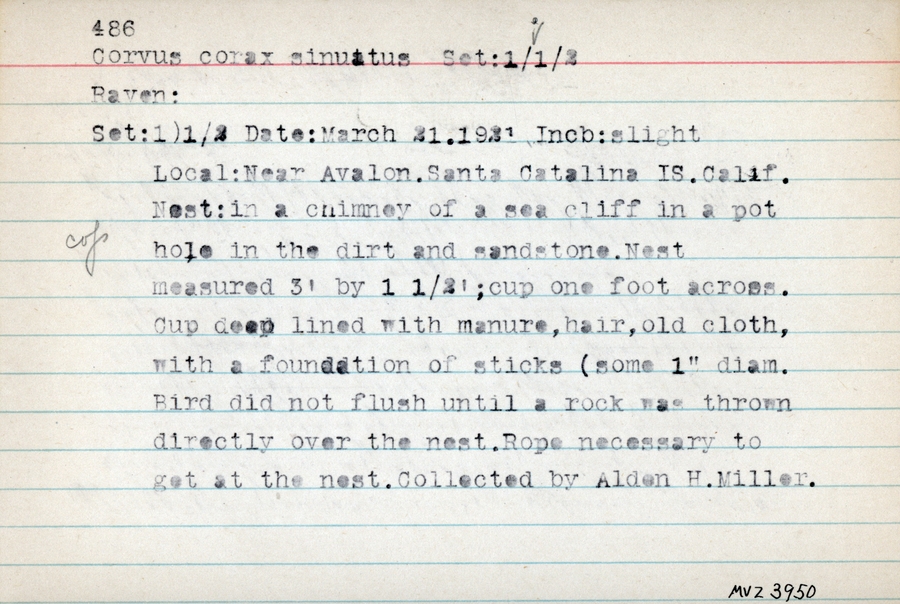 486
Corvus corax sinuatus Set:1/1/2
Raven:
Set:1)1/2 Date:March 21.1921 Incb:slight
Local:Near Avalon.Santa Catalina IS.Calif.
Nest:in a chimney of a sea cliff in a pot
hole in the dirt and sandstone.Nest
measured 3' by 1 1/2';cup one foot across.
Cup deep lined with manure,hair,old cloth,
with a foundation of sticks (some 1" diam.
Bird did not flush until a rock was thrown
directly over the nest.Rope necessary to
get at the nest.Collected by Alden H.Miller.
MVZ 3950